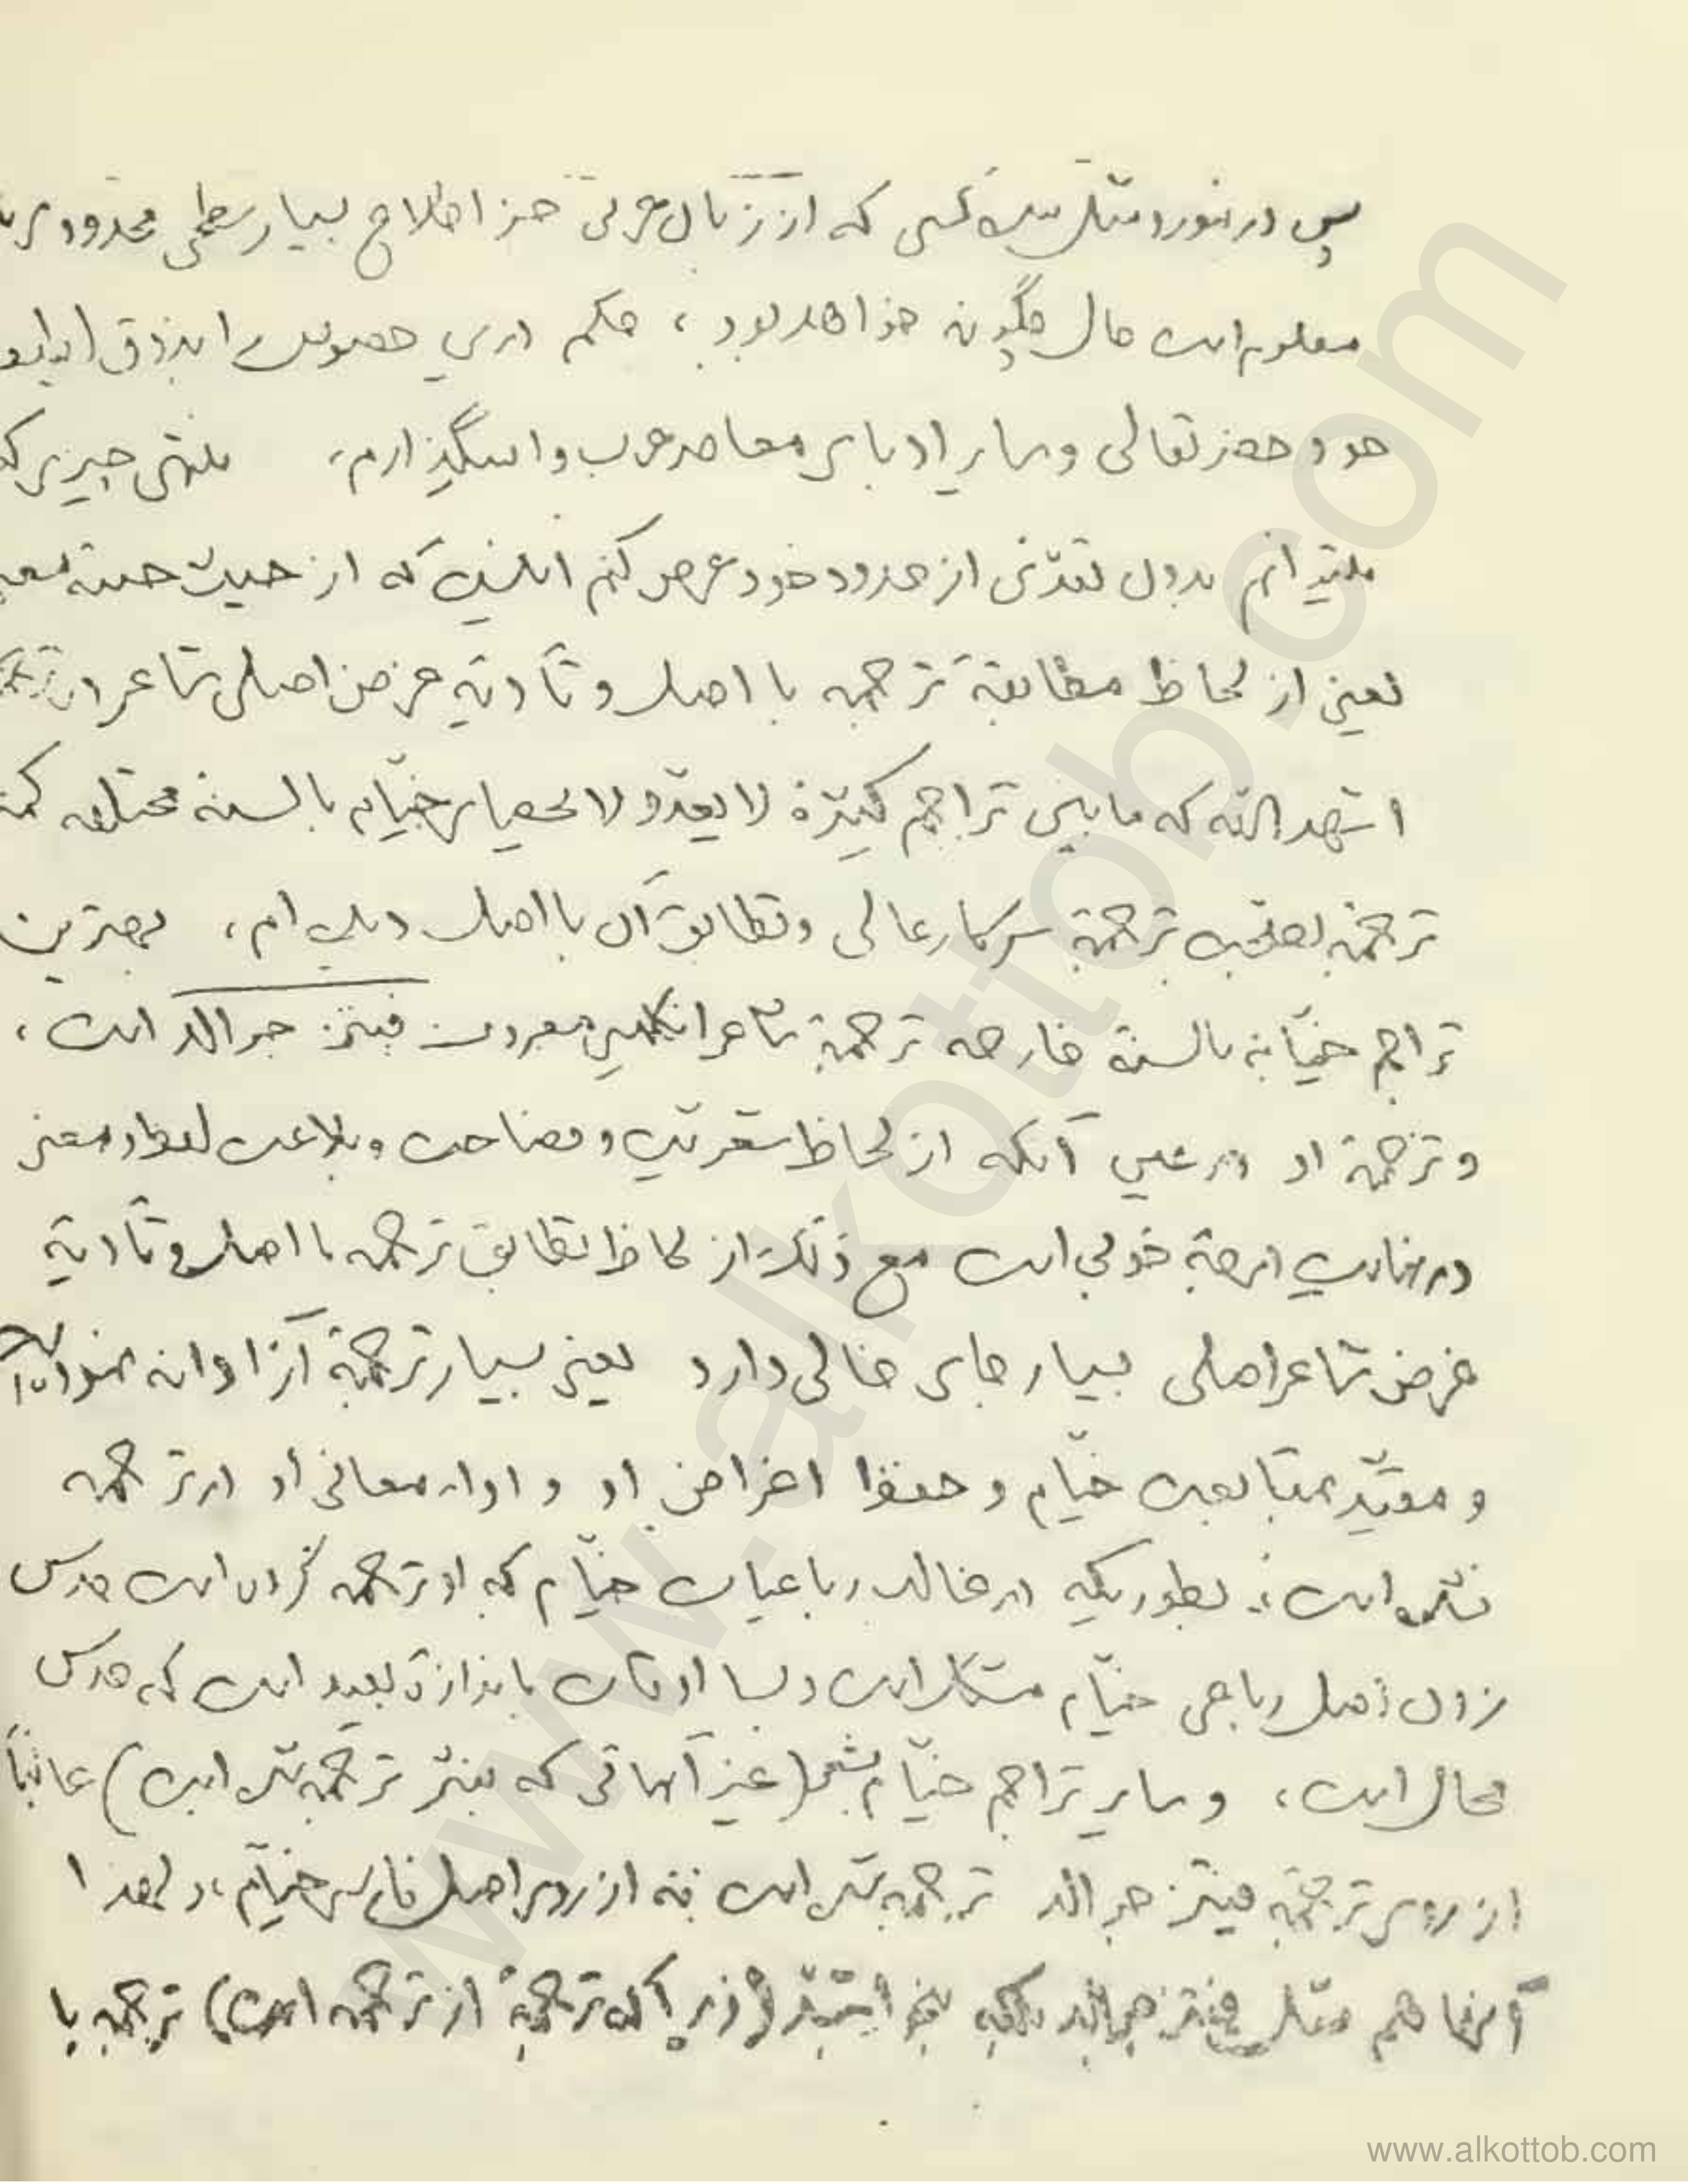 پس در اینمورد مثل من کسی که از زبان عربی جز اطلاع بسیار سطحی محدودی
معلوم است حال چگونه خواهد بود ، حکم درین خصوص را بذوق
خود حضرتعالی و سایر ادبای معاصر عرب وا میگذارم، منتهی چیزی که
میتوانم بدون تعدّی از حدود خود عرض کنم اینست که از حیث جنبه
یعنی از لحاظ مطابقهٔ ترجمه با اصل و تأدیهٔ غرض اصلی شاعر در
اشهد بالله که مابین تراجم کثیرهٔ لا یعدّ و لا یحصای خیّام بالسنهٔ مختلفه
ترجمهٔ بخوبی ترجمهٔ سرکار عالی و تطابق آن با اصل دیده‌ام، بهترین
تراجم خیّام به بالسنهٔ خارجه ترجمهٔ شاعر انگلیسی معروف فیتز جرالد است ،
و ترجمهٔ او در عین آنکه از لحاظ شعریّت و فصاحت و بلاغت لفظ و معنی
در نهایت درجهٔ خوبی است مع ذلک از لحاظ تطابق ترجمه با اصل و تأدیهٔ
غرض شاعر اصلی بسیار جای خالی دارد یعنی بسیار ترجمهٔ آزادانه نموده
و مقیّد بمتابعت خیّام و حفظ اغراض او و اداء معانی او در ترجمه
نشده است ، بطوریکه در غالب رباعیات خیّام که او ترجمه کرده است حدس
زدن اصل رباعی خیّام مشکل است و بسا اوقات باندازهٔ بعید است که حدس
محال است ، و سایر تراجم خیّام بشعر (غیر آنهائی که بنثر ترجمه شده است) غالباً
از روی ترجمهٔ فیتز جرالد ترجمه شده است نه از روی اصل فارسی خیّام، و لهذا
آنها هم مثل فیتز جرالد بلکه بنحو اشدّ (زیرا که ترجمهٔ از ترجمه است) ترجمه با
www.alkottob.com